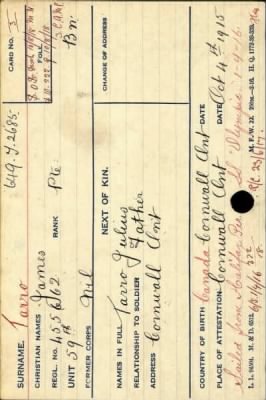 649-T-2685.
CARD NO. 3
FOLL
SURNAME. Tarro
CHRISTIAN NAMES James
REGL. NO. 455662 RANK Pte
UNIT 59th Bn.
FORMER CORPS Nil
NEXT OF KIN.
CHANGE OF ADDRESS
NAMES IN FULL Tarro Julius
RELATIONSHIP TO SOLDIER Father
ADDRESS Cornwall Ont
COUNTRY OF BIRTH Canada Cornwall Ont DATE
PLACE OF ATTESTATION Cornwall Ont DATE Oct 4th 1915
Sailed from Halifax Per S.S. Olympic 1-4-16
L. L. M. & D. M. F. W. H. Q.